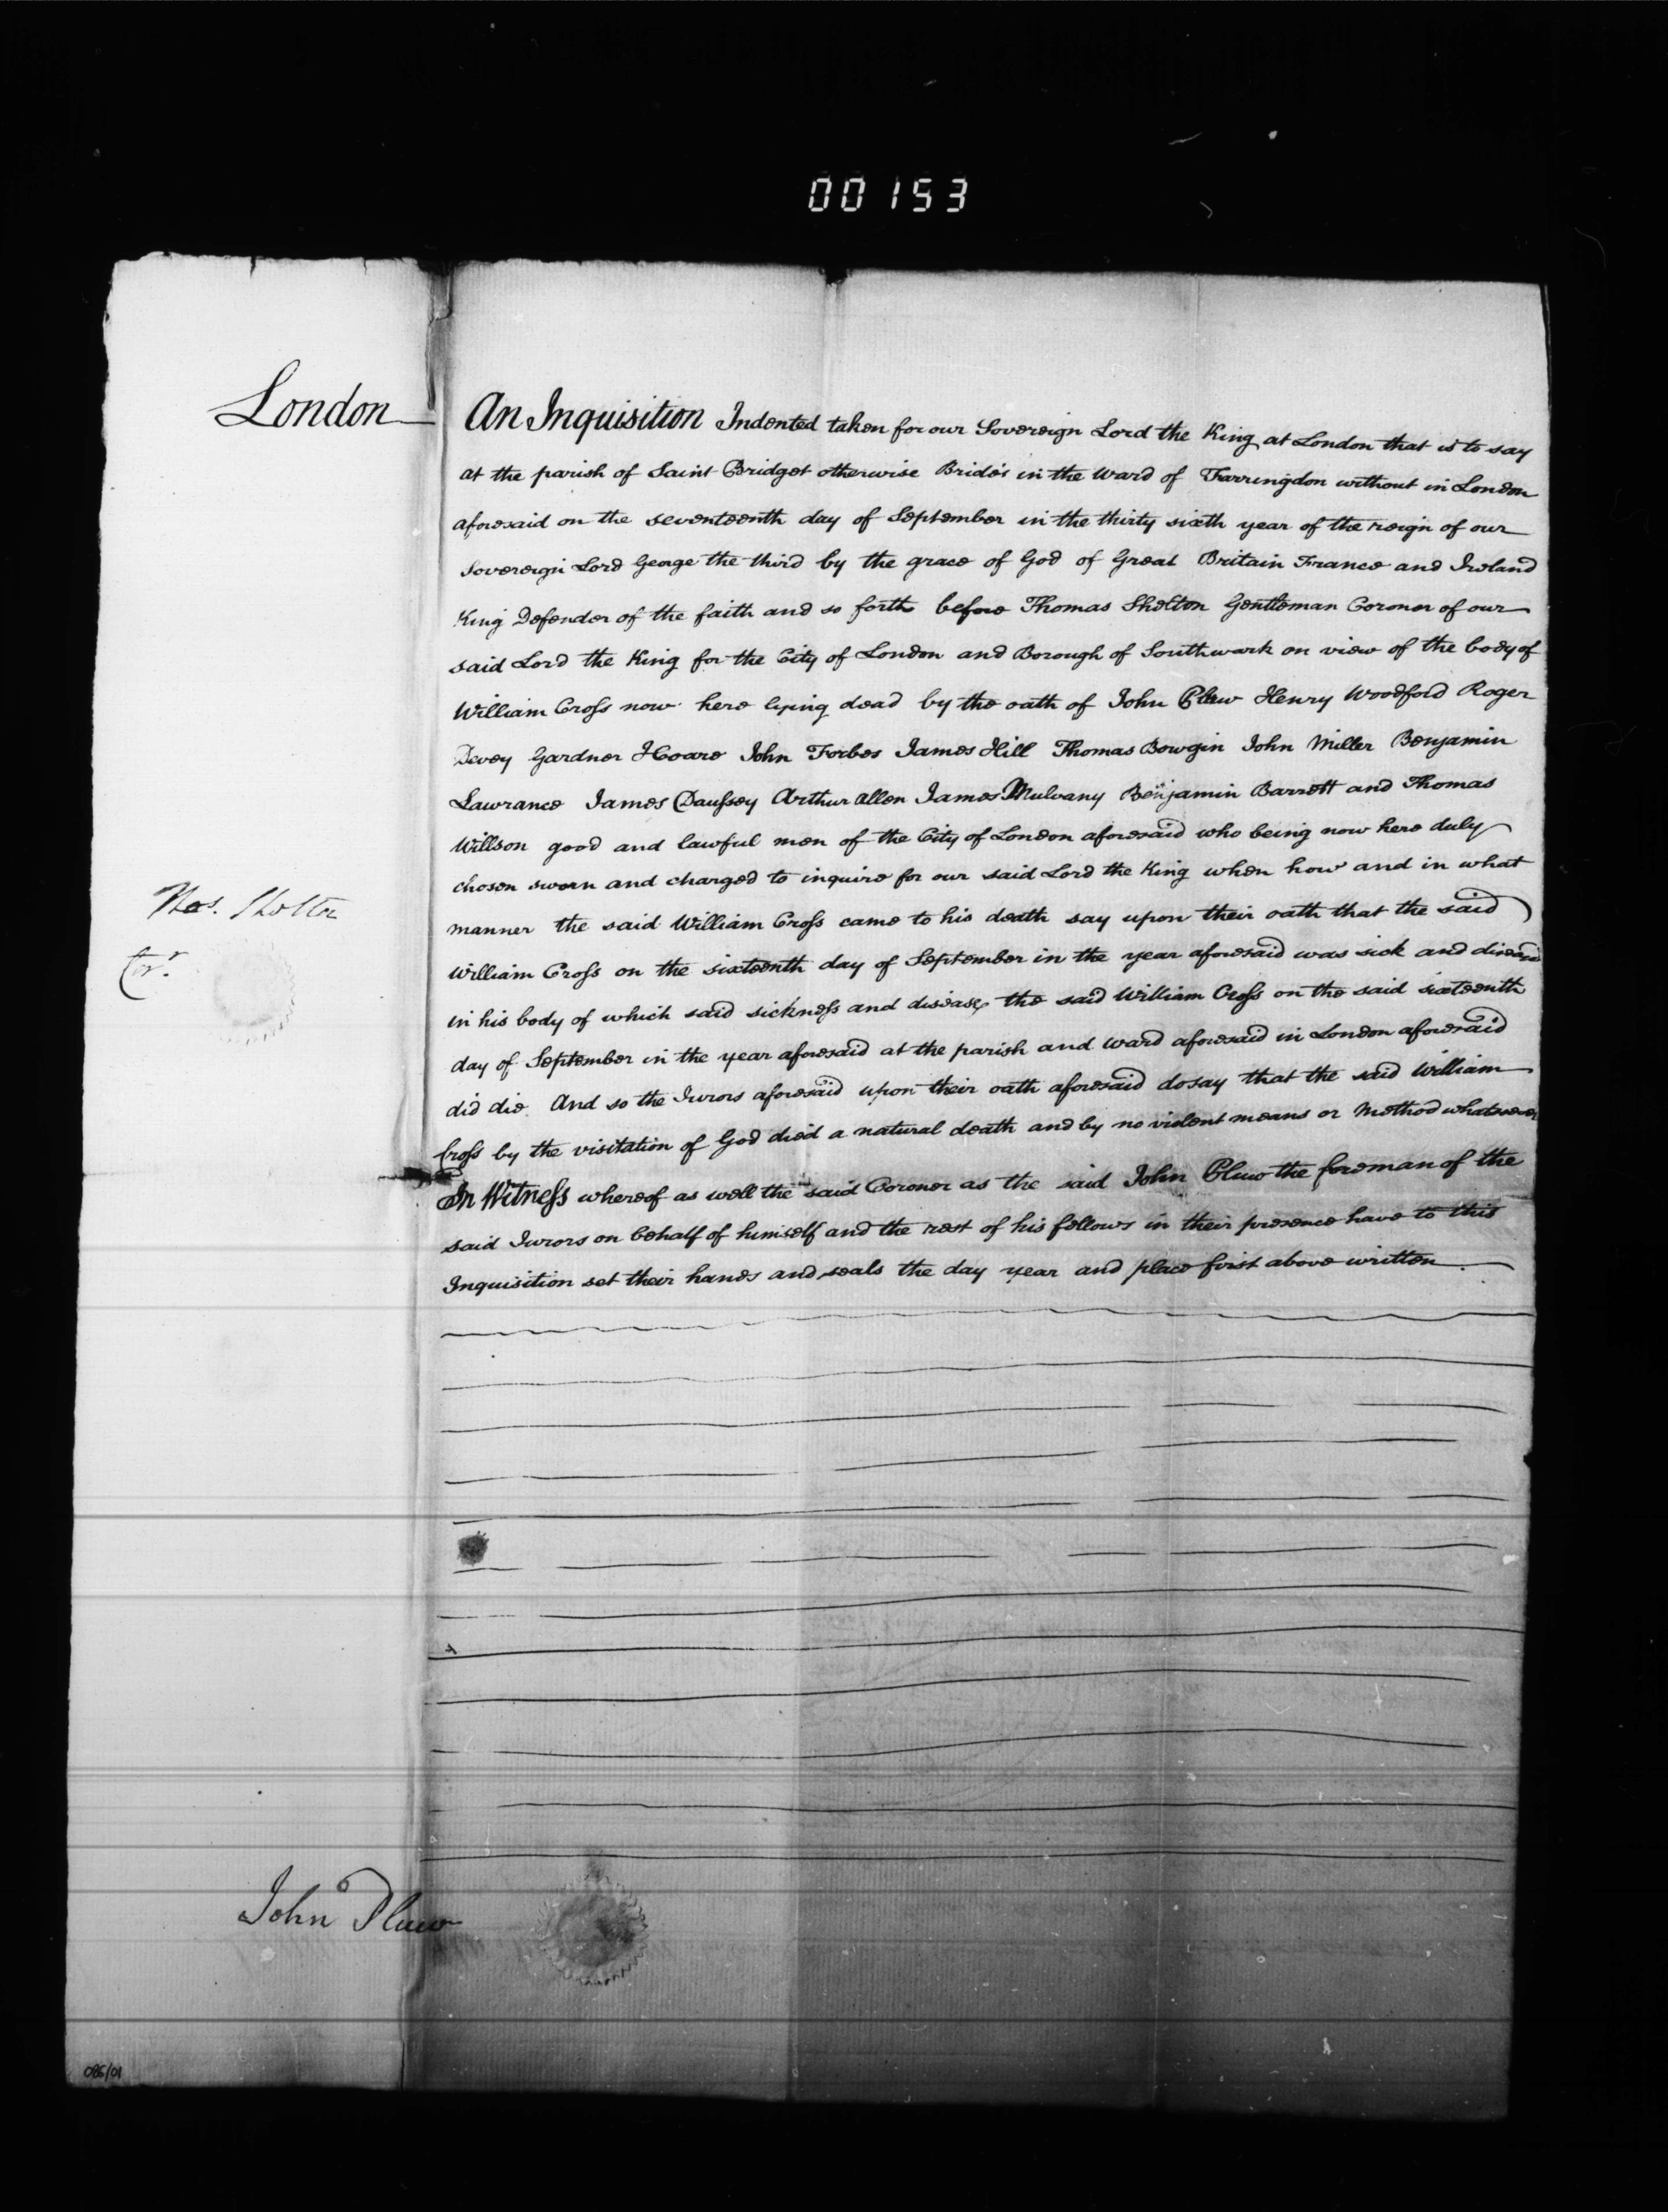 00153
London
An Inquisition Indented taken for our Sovereign Lord the King at London that is to say
at the parish of Saint Bridget otherwise Bride's in the Ward of Farringdon without in London
aforesaid on the seventeenth day of September in the thirty sixth year of the reign of our
Sovereign Lord George the third by the grace of God of Great Britain France and Ireland
King Defender of the faith and so forth before Thomas Shelton Gentleman Coroner of our
said Lord the King for the City of London and Borough of Southwark on view of the body of
William Cross now here lying dead by the oath of John Plew Henry Woodford Roger
Devey Gardner Hoare John Forbes James Hill Thomas Bowgin John Miller Benjamin
Lawrance James Daufsey Arthur Allen James Mulvany Benjamin Barrett and Thomas
Willson good and lawful men of the City of London aforesaid who being now here duly
chosen sworn and charged to inquire for our said Lord the King when how and in what
Thos. Shelton
manner the said William Cross came to his death say upon their oath that the said
Cor.r
William Cross on the sixteenth day of September in the year aforesaid was sick and diseased
in his body of which said sickness and disease the said William Cross on the said sixteenth
day of September in the year aforesaid at the parish and ward aforesaid in London aforesaid
did die. And so the Jurors aforesaid upon their oath aforesaid do say that the said William
Cross by the visitation of God died a natural death and by no violent means or Method whatsoever
In Witness whereof as well the said Coroner as the said John Plew the foreman of the
said Jurors on behalf of himself and the rest of his fellows in their presence have to this
Inquisition set their hands and seals the day year and place first above written.
John Plew
086/01